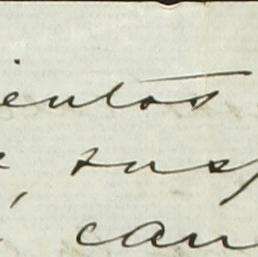 ientos
, sus
can